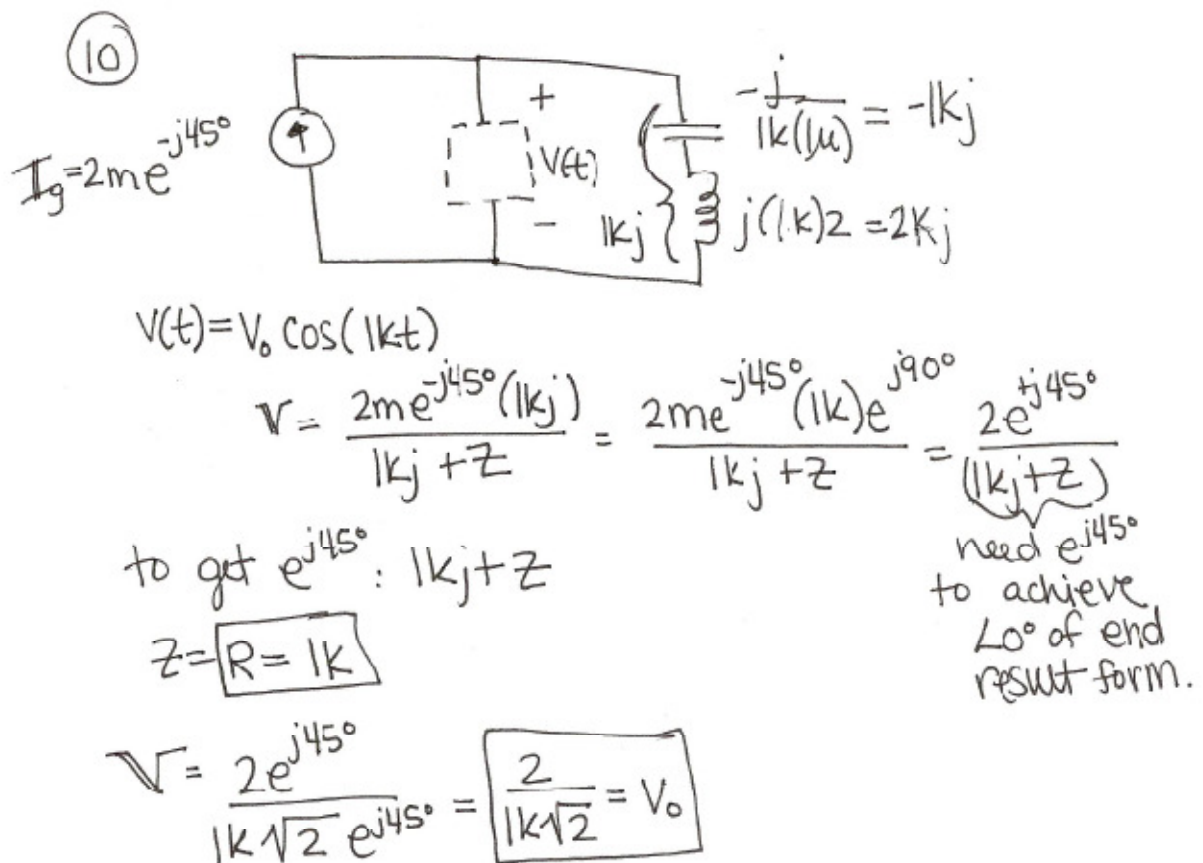 10
I_g=2me^{-j45°}
+
V(t)
-
1kj
-j/(1k(1μ)) = -1kj
j(1k)2 =2Kj
V(t)=V_0 cos(1kt)
V = 2me^{-j45°}(1kj)/(1kj +Z) = 2me^{-j45°}(1k)e^{j90°}/(1kj +Z) = 2e^{+j45°}/(1kj+Z)
need e^{j45°}
to achieve
∠0° of end
result form.
to get e^{j45°} : 1kj+Z
Z= R= 1k
V= 2e^{j45°}/(1k√2 e^{j45°}) = 2/(1k√2) = V_0